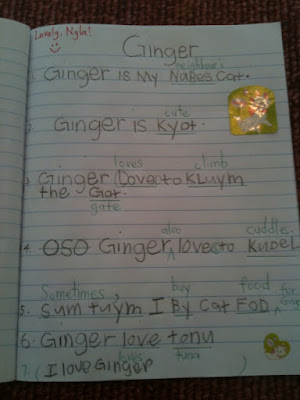 Lovely, Nyla!
Ginger
neighbour's
1. Ginger is My NaBes Cat.
cute
2. Ginger is Kyot.
loves climb
3. Ginger Love to KLuym
the Gat.
gate
also cuddle
4. OSO Ginger love to KUDEL
Sometimes, buy food
5. Sum tuym I By Cat FOD
6. Ginger love tonu
loves tuna
7. (I love Ginger )